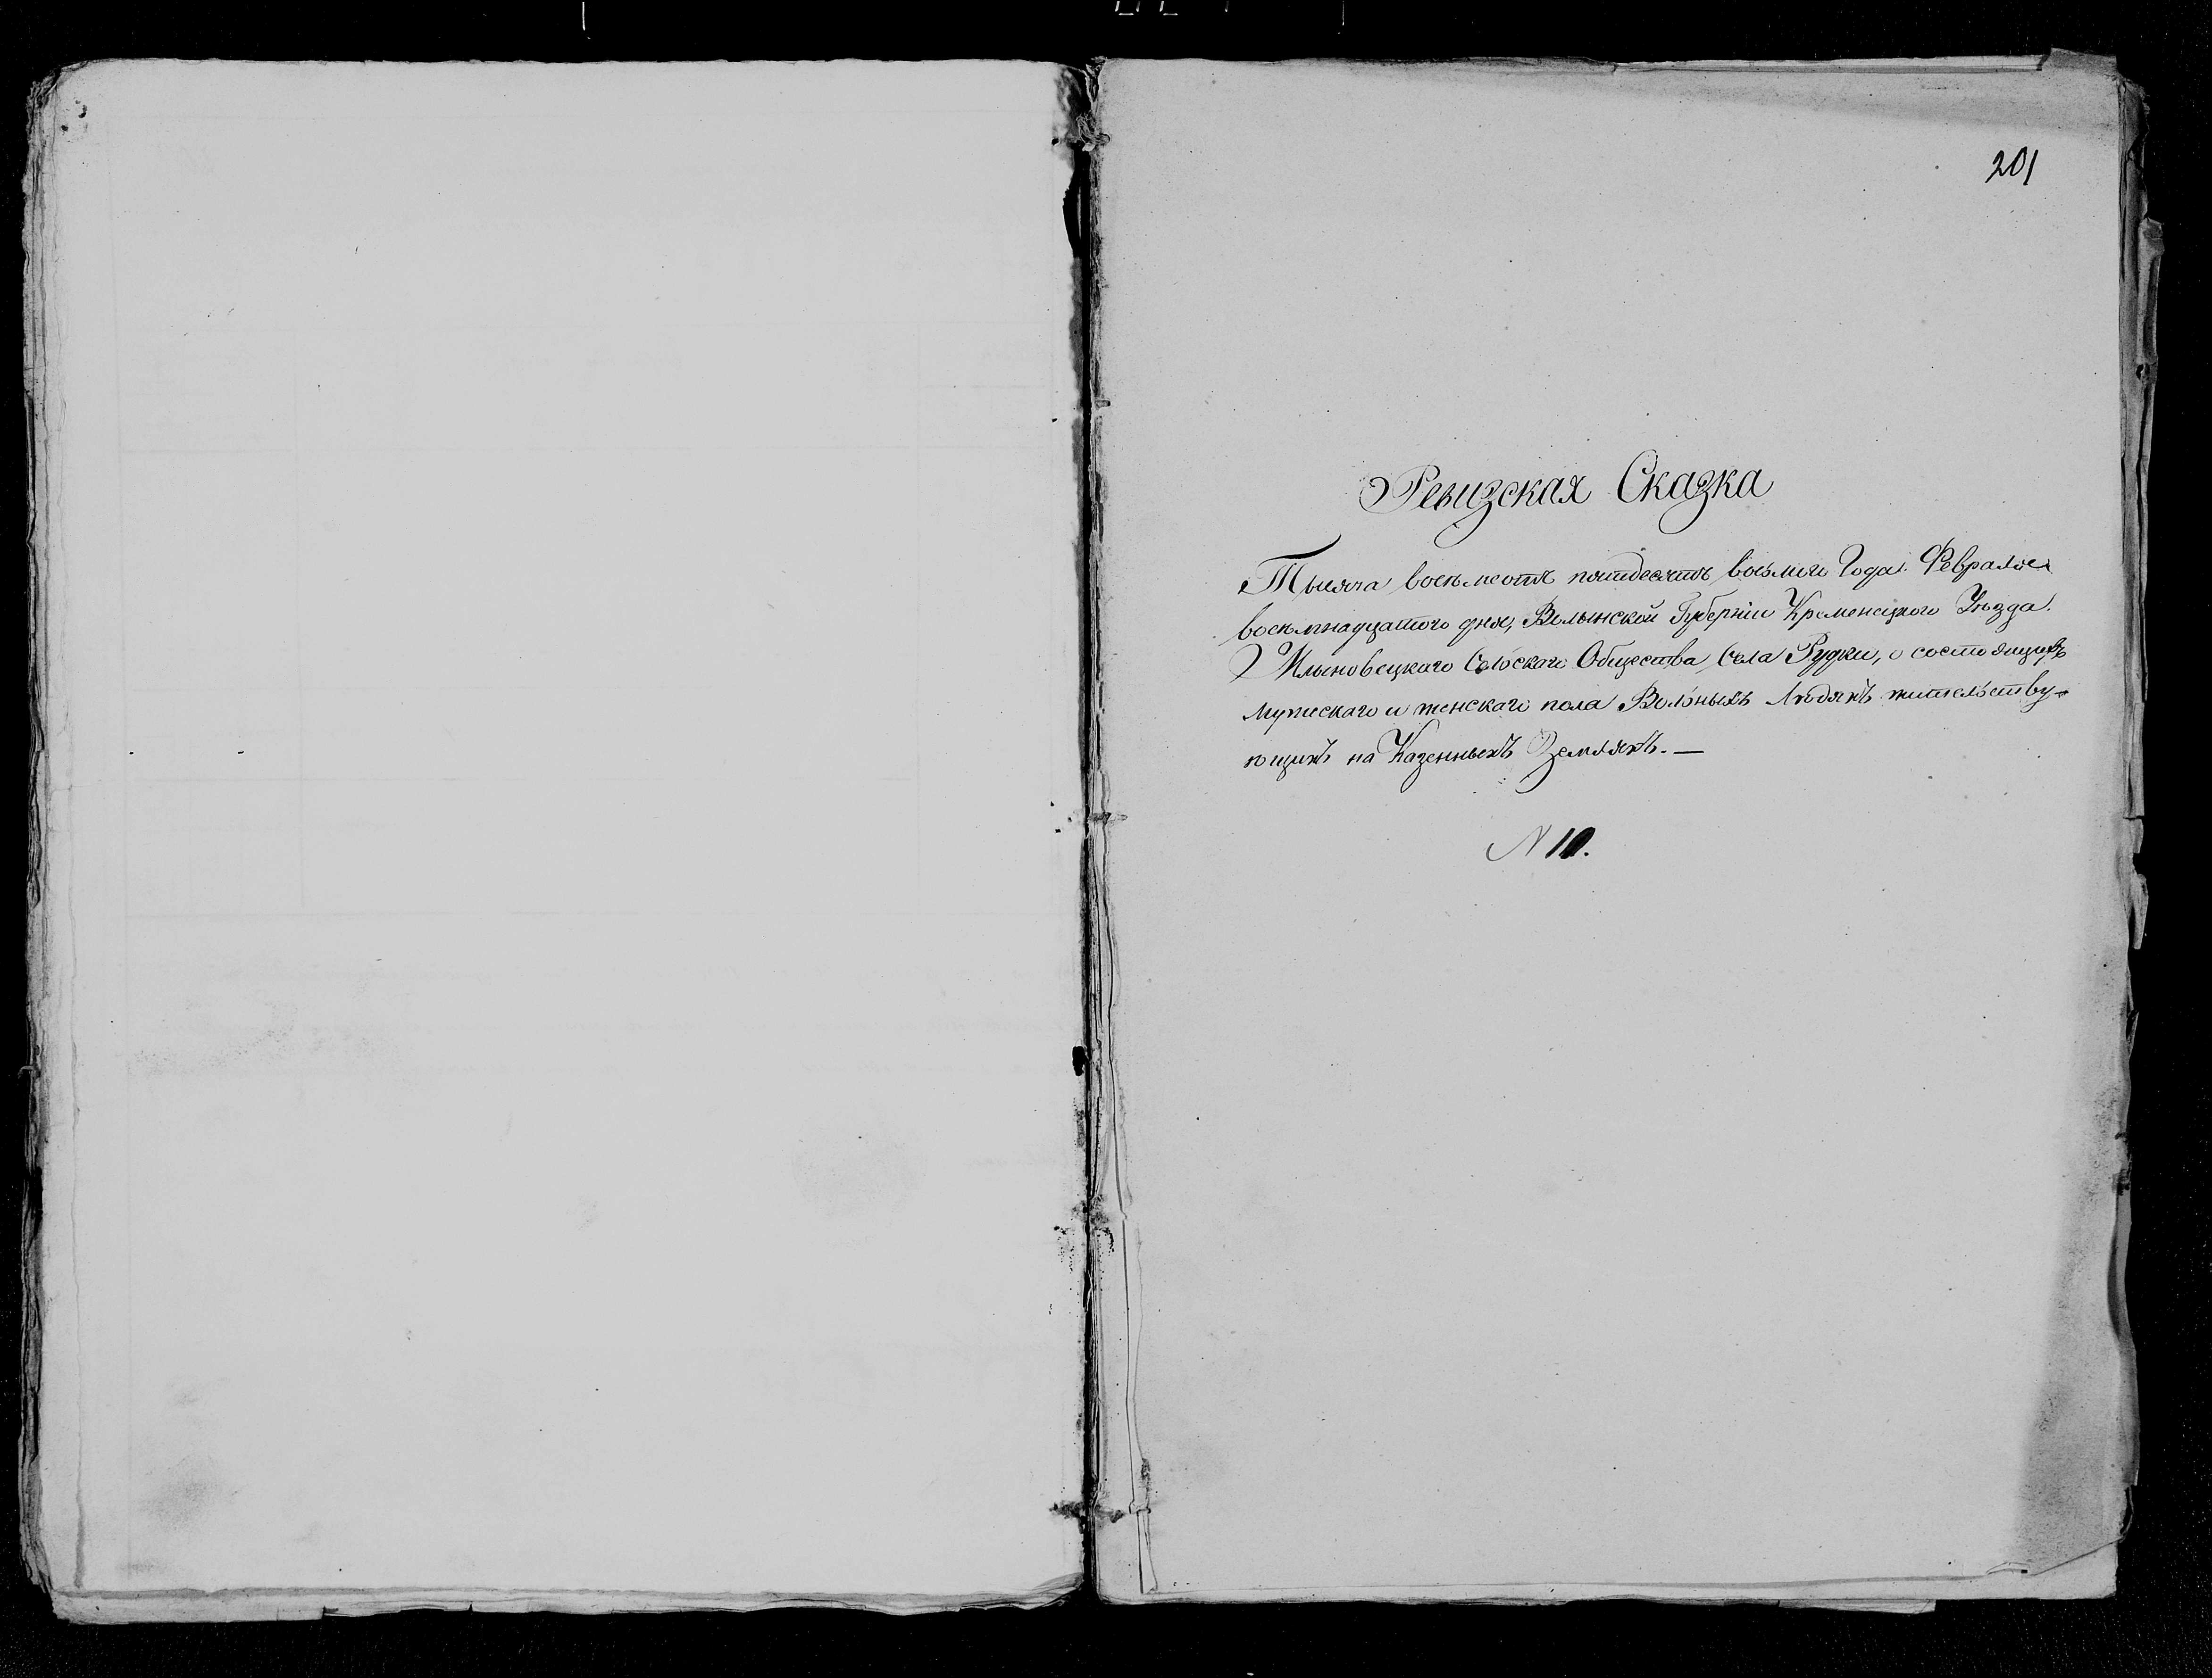 201
Ревизская Сказка
Тысяча восемьсотъ пятдесятъ восьмого Года. Февраля
восемнадцатого дня, Волынской Губерніи Кременецкого Уѣзда.
Млыновецкаго Сельскаго Общества, Села Рудки, о состоящихъ
мужескаго и женскаго пола Вольныхъ Людяхъ жительству-
ющихъ на Казенныхъ Земляхъ. —
N 10.